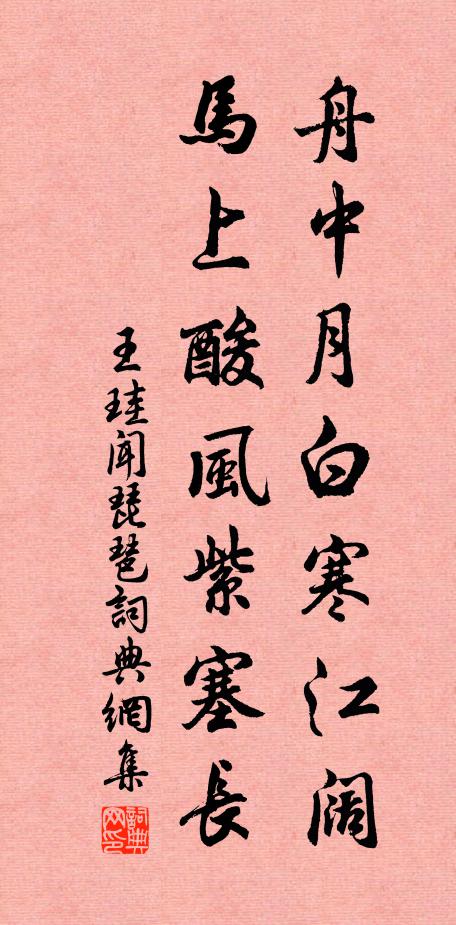 舟中月白寒江阔
馬上酸風紫塞長
王珪闻琵琶詞典網集
詞典网印